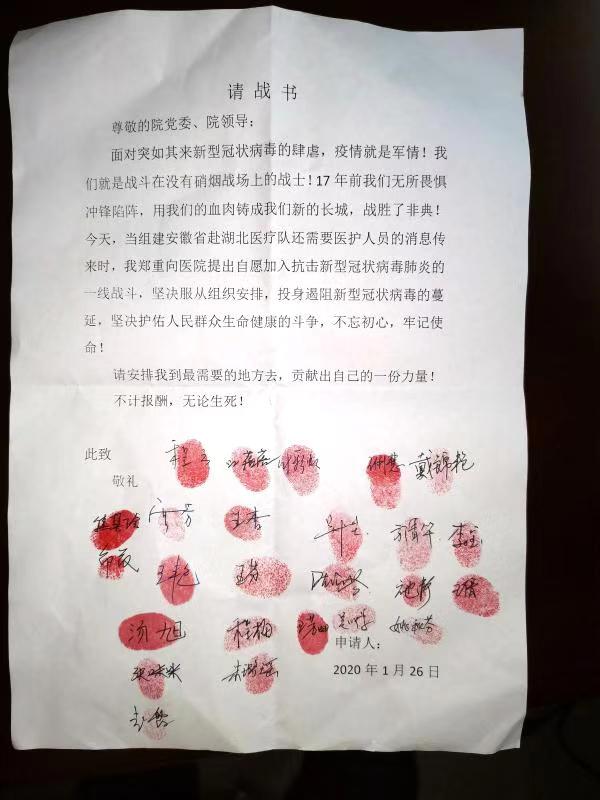 请战书
尊敬的院党委、院领导：
面对突如其来新型冠状病毒的肆虐，疫情就是军情！我
们就是战斗在没有硝烟战场上的战士！17年前我们无所畏惧
冲锋陷阵，用我们的血肉铸成我们新的长城，战胜了非典！
今天，当组建安徽省赴湖北医疗队还需要医护人员的消息传
来时，我郑重向医院提出自愿加入抗击新型冠状病毒肺炎的
一线战斗，坚决服从组织安排，投身遏阻新型冠状病毒的蔓
延，坚决护佑人民群众生命健康的斗争，不忘初心，牢记使
命！
请安排我到最需要的地方去，贡献出自己的一份力量！
不计报酬，无论生死！
此致
戴锦艳
敬礼
王艳
汤旭 程梅
申请人：
2020年1月26日